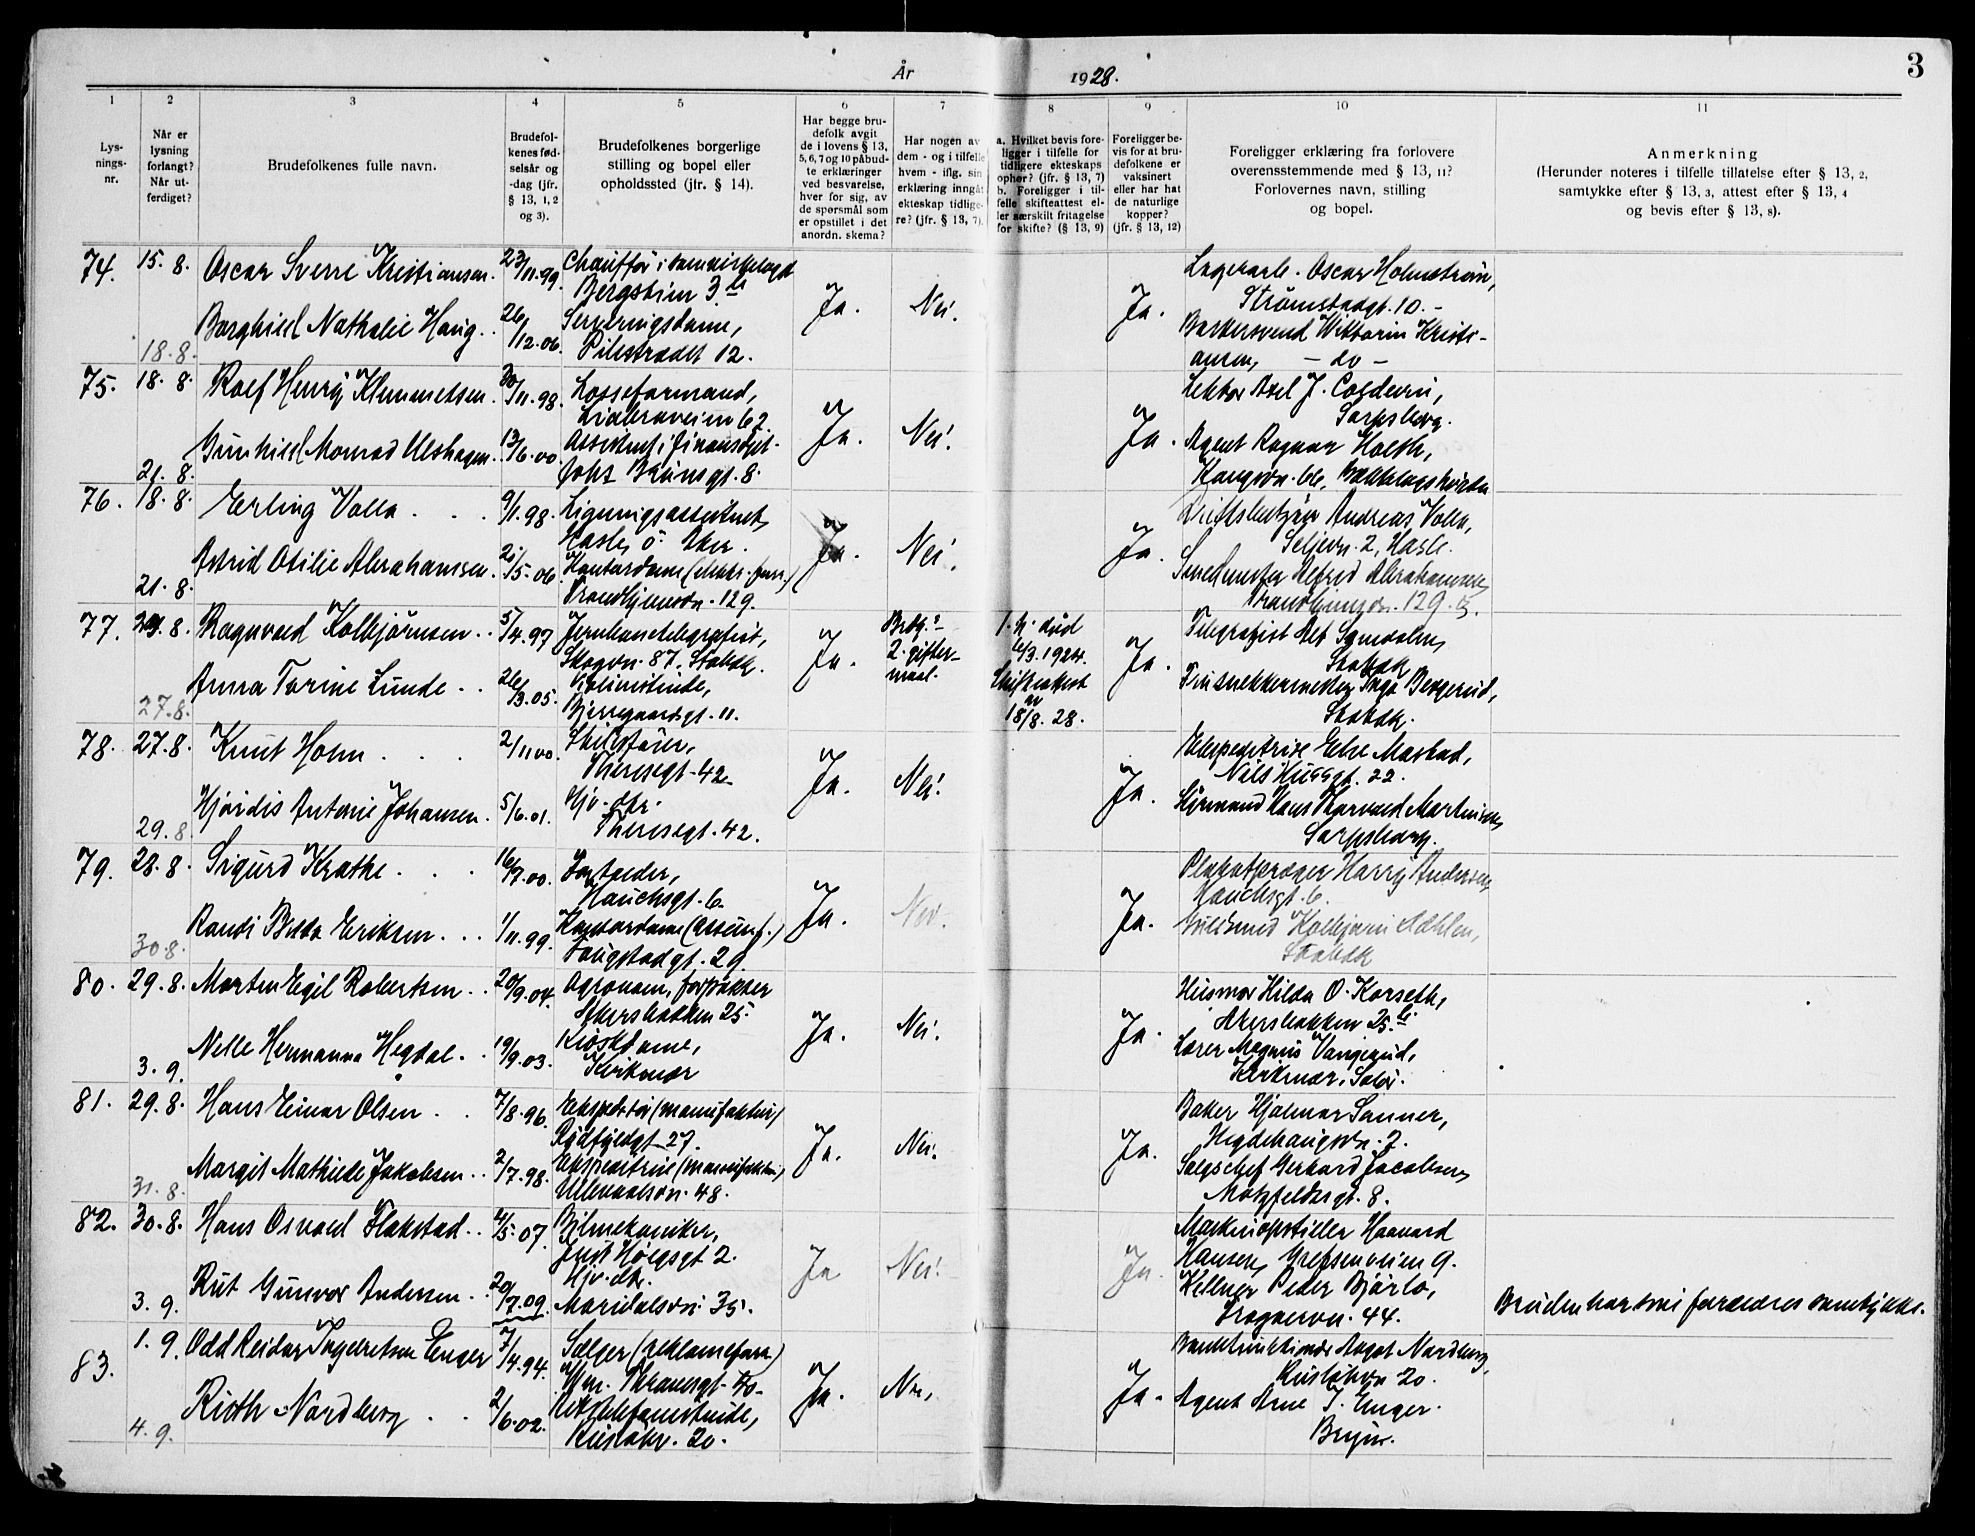 År 1928.
3
1 2 3 4 5 6 7 8 9 10 11
Lys-
nings-
nr.
Når er
lysning
forlangt?
Når ut-
ferdiget?
Brudefolkenes fulle navn.
Brudefol-
kenes fød-
selsår og
-dag (jfr.
§ 13, 1, 2
og 3).
Brudefolkenes borgerlige
stilling og bopel eller
opholdssted (jfr. § 14).
Har begge bru-
defolk avgit
de i lovens § 13,
5, 6, 7 og 10 påbud-
te erklæringer
ved besvarelse,
hver for sig, av
de spørsmål som
er opstillet i det
anordn. skema?
Har nogen av
dem - og i tilfelle
hvem - iflg. sin
erklæring inngåt
ekteskap tidlige-
re? (jfr. § 13, 7).
a. Hvilket bevis fore-
ligger i tilfelle for
tidligere ekteskaps
ophør? (jfr. § 13, 7)
b. Foreligger i til-
felle skifteattest el-
ler særskilt fritagelse
for skifte? (§ 13, 9)
Foreligger be-
vis for at bru-
defolkene er
vaksinert
eller har hat
de naturlige
kopper?
(jfr. § 13, 12)
Foreligger erklæring fra forlovere
overensstemmende med § 13, 11?
Forlovernes navn, stilling
og bopel.
Anmerkning
(Herunder noteres i tilfelle tillatelse efter § 13, 2,
samtykke efter § 13, 3, attest efter § 13, 4
og bevis efter § 13, 8).
74. 15. 8. Oscar Sverre Kristiansen. 23/11.99. Chauffør i
Bergstien 3 b
Ja. Nei. Ja.
Lagerarb. Oscar Holmstrøm,
Strømstadgt. 10. -
18.8. Borghild Nathalie Haug.. 26/12.06. Serveringsdame,
Pilestrædet 12.
Barbersvend Kristi-
ansen, - do -
75. 18. 8. Rolf Henry Klemmetsen. 30/11.98. Losseformand,
62.
Ja. Nei. Ja.
Lektor Axel J. Coldevin,
Sarpsborg.
21. 8. Gunhild Monrad Ulshagen. 13/6.00. Assistent i
Johs Brunsgt. 8.
Agent Ragnar Holth,
76. 18.8. Erling Volla . . . 9/1.98. Ligningsassistent,
Hasle, Ø. Aker.
Ja. Nei. Ja.
Andreas Volla,
2, Hasle.
21. 8. Astrid Otilie Abrahamsen. 21/5.06. Kontordame (elektr. forr.)
Trondhjemsvn. 129.
Smedmester Alfred Abrahamsen,
Trondhjemsvn. 129.
77. 8. Ragnvald Kolbjørnsen.. 5/4.97 Jernbanetelegrafist,
Skogvn. 87. Stabæk.
Ja. Brdg.s
2. gifter-
maal.
1. h. død
6/3.1924.
Skifteattest
av
18/8. 28.
Ja.
Telegrafist Alf
Stabæk
27.8. Anna Torine Lunde . . 26/3.05. Violinistinde,
Bjerregaardsgt. 11.
Finsnekkermester Inga Bergerud,
Stabæk.
78. 27.8. Knut Holm . . . 2/11 00.
Theresegt. 42
Ja. Nei. Ja.
Ekspeditrise Else
Niels Huusgt. 22.
29.8. Hjørdis Antonie Johansen. 5/6.01. Hjv. dtr.
Theresegt. 42.
Styrmand Hans Thorvald Martinsen,
Sarpsborg.
79. 28.8. Sigurd Krathe . . . 16/7.00.
Hauchsgt. 6
Ja. Nei. Ja.
Harry Andersen,
Hauchsgt. 6.
30.8. Randi Bilda Eriksen. . . 1/11.99. Kontordame (assuranf.)
Faugstadgt. 29.
Guldsmed Kolbjørn Dæhlen,
Stabæk
80. 29.8. Morten Egil Robertsen . . 20/9.04. Agronom, forpakter
Akersbakken 25.
Ja. Nei. Ja.
Husmor Hilda O. Korseth,
Akersbakken 25. b.
3. 9. Nelle Hermanna Hegdal. . 19/9.03. Kioskdame,
Kirkenær
Lærer Magnus Vangerud,
Kirkenær, Solør.
81. 29.8. Hans Einar Olsen . . 7/8.96. Ekspeditør (manufaktur)
Rydfjeldgt 27.
Ja. Nei. Ja.
Baker Hjalmar Sanner,
Hegdehaugsvn. 7.
31. 8. Margit Mathilde Jakobsen.. 2/7.98. Ekspeditrise (manufaktur)
Ullevaalsvn. 48.
Salgschef Gerhard Jacobsen,
Motzfeldtsgt. 8.
82. 30.8. Hans Osvald Flakstad.. 4/5.07. Bilmekaniker,
Just Høegsgt 2.
Ja Nei. Ja.
Maskinopstiller Haavard
Hansen, Grefsenveien 9.
3. 9. Rut Gunvor Andersen . . 20/7.09. Hjv. dtr.
Maridalsvn. 35.
Kellner Peder Bjørlo,
Frognervn. 44.
Bruden har sine forældres samtykke.
83. 1. 9. Odd Reidar Ingebretsen Enger 7/4.94. Sælger (reklameforr.)
Thranesgt. 40
Ja. Nei. Ja.
Aagot Nordberg,
20.
4. 9. Ruth Nordberg . . 2/6.02. Rikstelefonistinde,
20.
Agent Arne I. Enger.
Bryn.